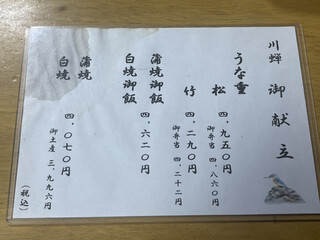 川蝉 御献立
うな重
松 四、九五〇円
御弁当 四、八六〇円
竹 四、二九〇円
御弁当 四、二一二円
蒲焼御飯
白焼御飯 四、六二〇円
蒲焼
白焼 四、〇七〇円
御土産 三、九九六円
（税込）